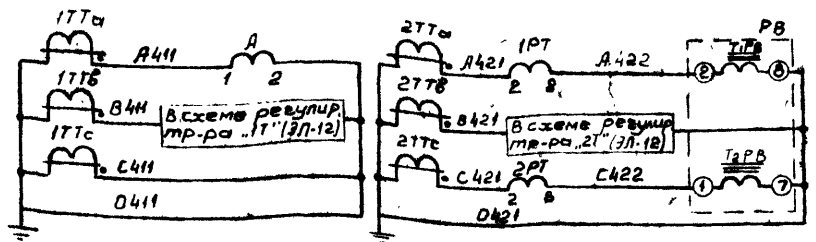 1ТТа
А411
А
1 2
1ТТв
В411
В схеме регулир.
тр-ра „1Т" (ЭЛ-12)
1ТТс
С411
О411
2ТТа
А421
1РТ
2 8
А422
РВ
2
Т1РВ
8
2ТТв
В421
В схеме регулир.
тр-ра „2Т" (ЭЛ-12)
2ТТс
С421
2РТ
2 8
С422
1
Т2РВ
7
О421